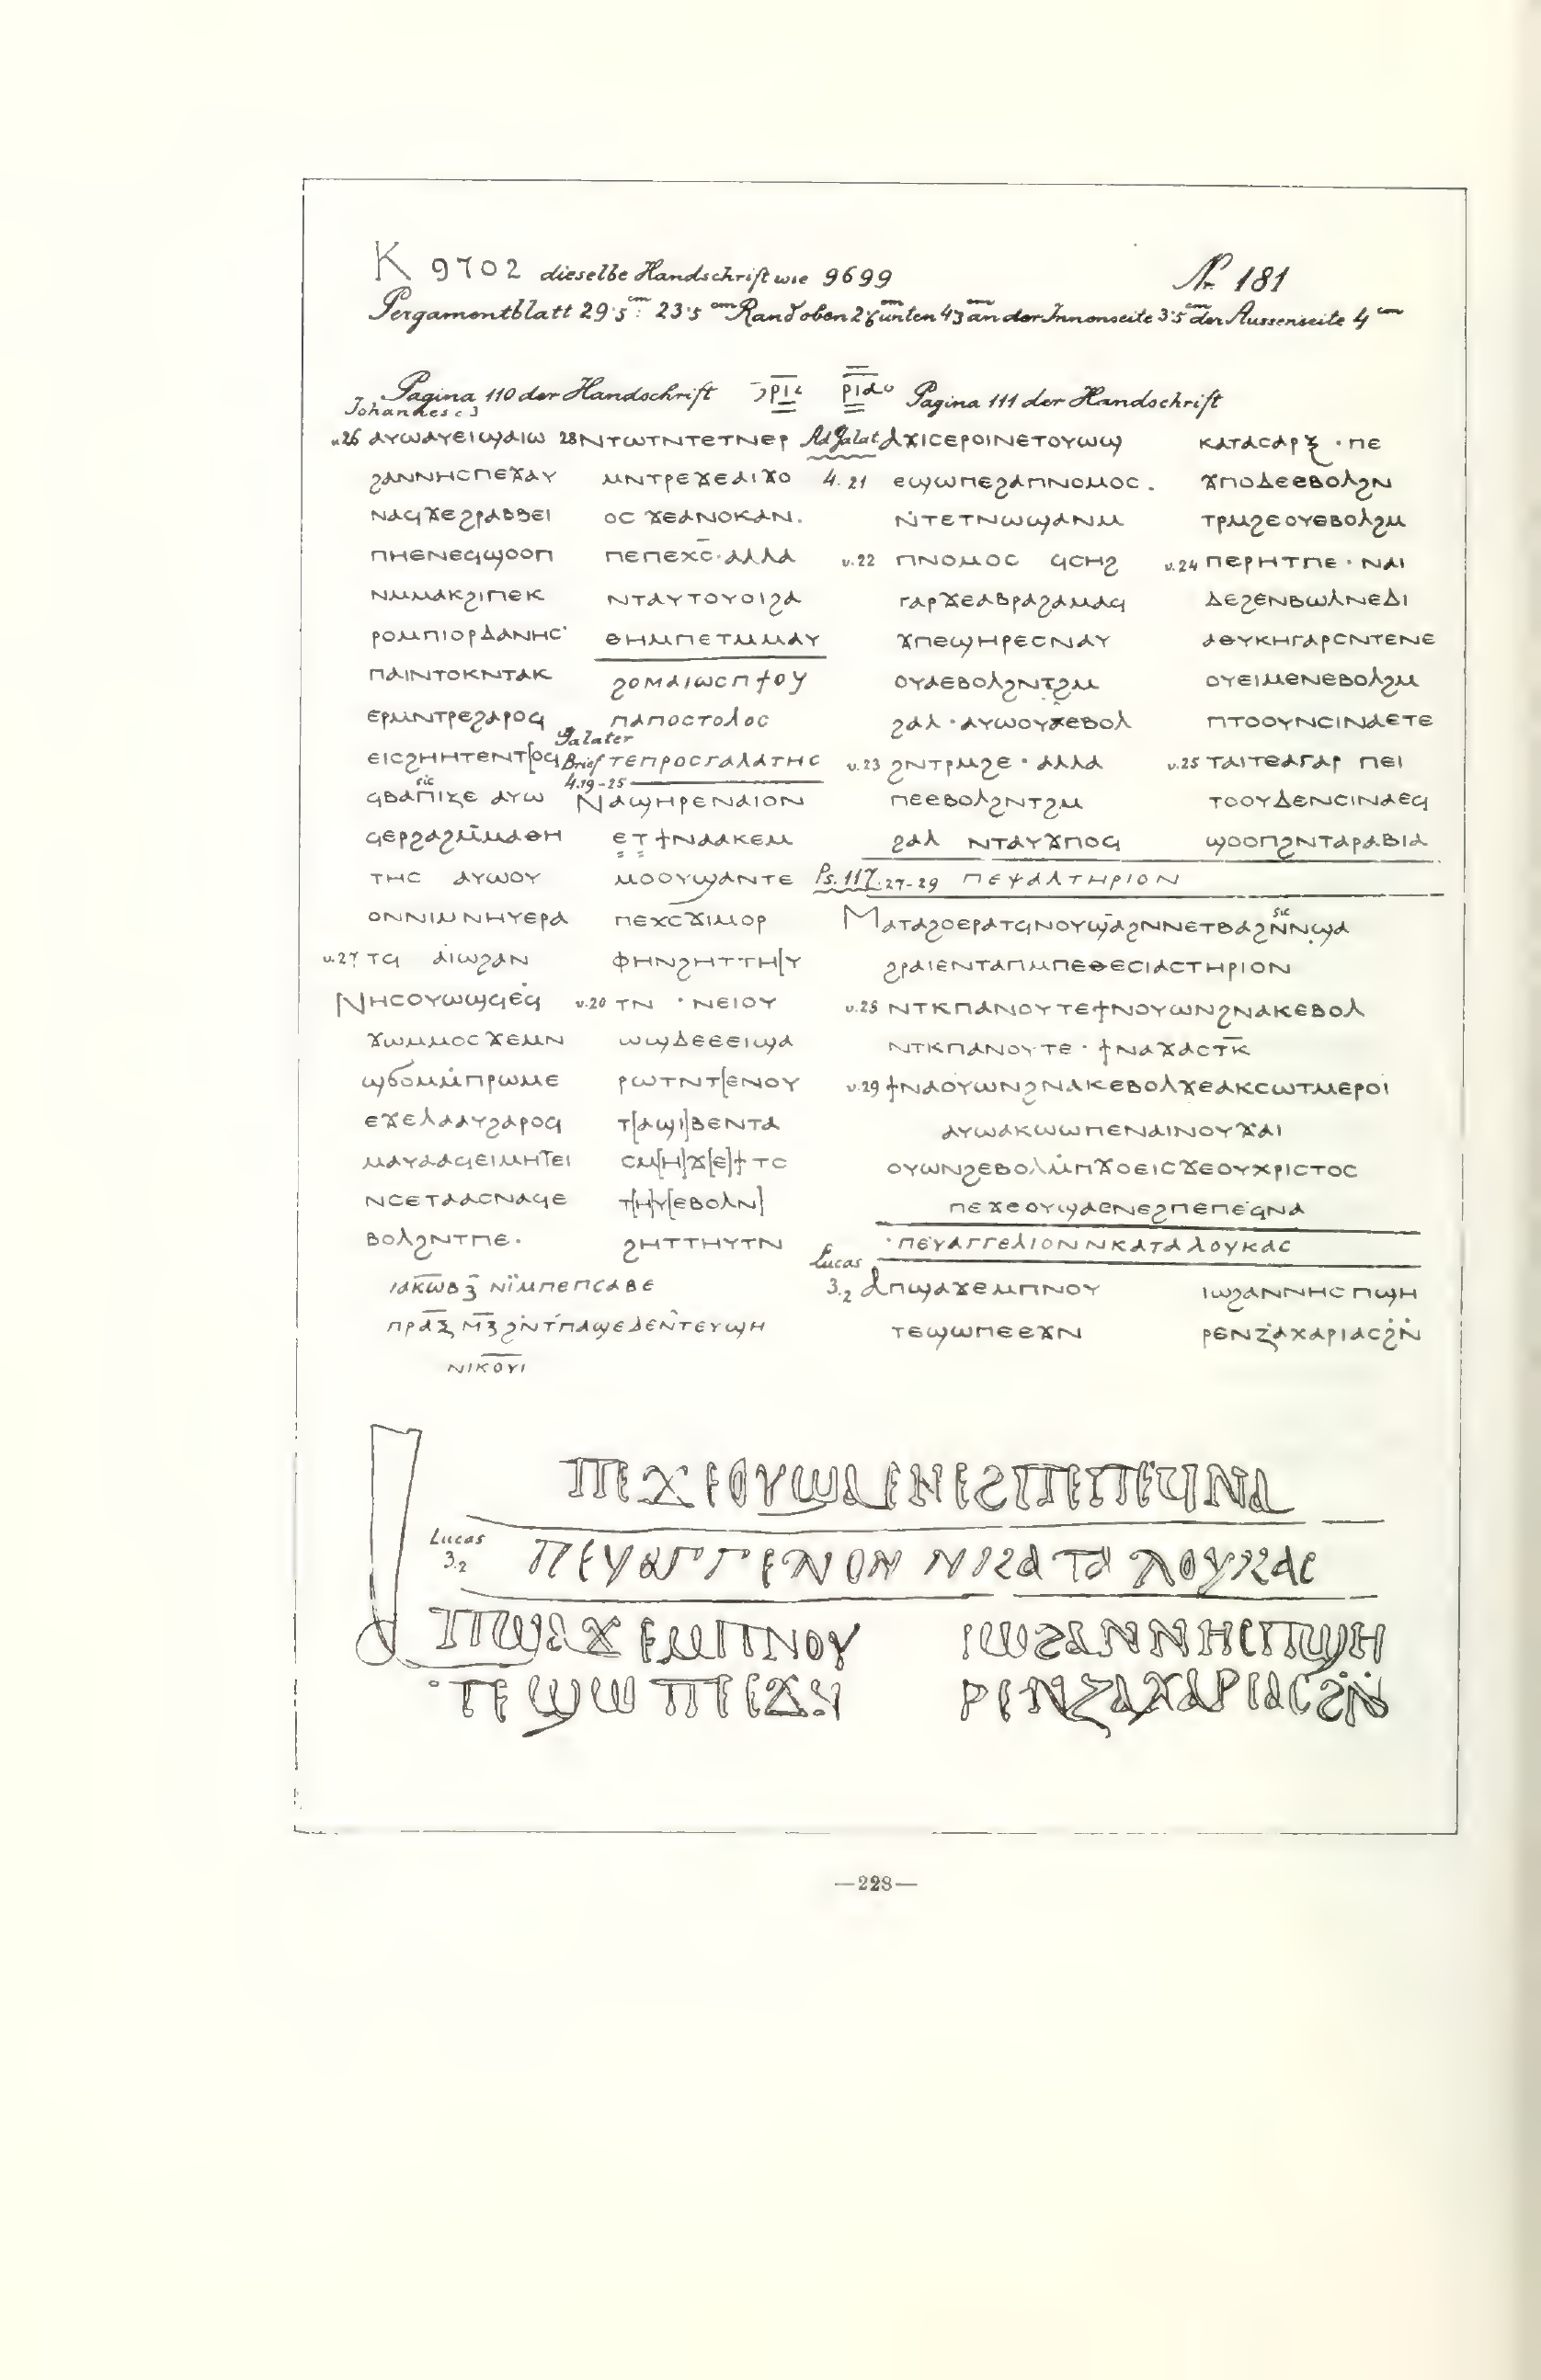 K 9702 dieselbe Handschrift wie 9699 Nr. 181
Pergamentblatt 29·5 cm : 23·5 cm Rand oben 2·8 unten 4·3 cm an der Innenseite 3·5 cm der Aussenseite 4 cm
Pagina 110 der Handschrift ⲣⲓ ⲣⲓⲁ Pagina 111 der Handschrift
Johannes c 3
v.26 ⲁⲩⲱⲁⲩⲉⲓϣⲁⲓⲱ
ϩⲁⲛⲛⲏⲥⲡⲉϫⲁⲩ
ⲛⲁϥϫⲉϩⲣⲁⲃⲃⲉⲓ
ⲡⲏⲉⲛⲉϥϣⲟⲟⲡ
ⲛⲙⲙⲁⲕϩⲓⲡⲉⲕ
ⲣⲟⲙⲡⲓⲟⲣⲇⲁⲛⲏⲥ·
ⲡⲁⲓⲛⲧⲟⲕⲛⲧⲁⲕ
ⲉⲣⲙⲛⲧⲣⲉϩⲁⲣⲟϥ
ⲉⲓⲥϩⲏⲏⲧⲉⲛⲧ[ⲟϥ
sic
ϥⲃⲁⲡⲓⲍⲉ ⲁⲩⲱ
ϥⲉⲣϩⲁϩⲙ̄ⲙⲁⲑⲏ
ⲧⲏⲥ ⲁⲩⲱⲟⲩ
ⲟⲛⲛⲓⲙⲛⲏⲩⲉⲣⲁ
v.27 ⲧϥ ⲁⲓⲱϩⲁⲛ
ⲛⲏⲥⲟⲩⲱϣϥⲉϥ
ϫⲱⲙⲙⲟⲥϫⲉⲙⲛ
ϣϭⲟⲙⲙ̇ⲡⲣⲱⲙⲉ
ⲉϫⲉⲗⲁⲁⲩϩⲁⲣⲟϥ
ⲙⲁⲩⲁⲁϥⲉⲓⲙⲏⲧⲉⲓ
ⲛⲥⲉⲧⲁⲁⲥⲛⲁϥⲉ
ⲃⲟⲗϩⲛⲧⲡⲉ·
ⲓⲁⲕ̄ⲱⲃ ⲍ̄ ⲛⲓ̈ⲙⲡⲉⲡⲥⲁⲃⲉ
ⲡⲣⲁⲝ̄ ⲙ̄ⲍ̄ ϩⲛ̇ⲧ̇ⲡⲁϣⲉⲇⲉⲛ̂ⲧⲉⲩϣⲏ
ⲛⲓⲕⲟⲩⲓ
28 ⲛⲧⲱⲧⲛⲧⲉⲧⲛⲉⲣ
ⲙⲛⲧⲣⲉϫⲉⲁⲓϫⲟ
ⲟⲥ ϫⲉⲁⲛⲟⲕⲁⲛ.
ⲡⲉⲡⲉⲭⲥ̄·ⲁⲗⲗⲁ
ⲛⲧⲁⲩⲧⲟⲩⲟⲓϩⲁ
ⲑⲏⲙⲡⲉⲧⲙⲙⲁⲩ
ϩⲟⲙⲁⲓⲱⲥ ⲡϯⲟⲩ
ⲡⲁⲡⲟⲥⲧⲟⲗⲟⲥ
Galater Brief 4.19-25 ⲧⲉⲡⲣⲟⲥⲅⲁⲗⲁⲧⲏⲥ
ⲛⲁϣⲏⲣⲉⲛⲁⲓⲟⲛ
ⲉⲧϯⲛⲁⲁⲕⲉⲙ
ⲙⲟⲟⲩϣⲁⲛⲧⲉ
ⲡⲉⲭⲥϫⲓⲙⲟⲣ
ⲫⲏⲛϩⲏⲧⲧⲏ[ⲩ
v.20 ⲧⲛ ·ⲛⲉⲓⲟⲩ
ⲱϣⲇⲉⲉⲉⲓϣⲁ
ⲣⲱⲧⲛⲧ[ⲉⲛⲟⲩ
ⲧ[ⲁϣⲓ]ⲃⲉⲛⲧⲁ
ⲥⲙ[ⲏ]ϫ[ⲉ]ϯⲧⲥ
ⲧ[ⲏ]ⲩ[ⲉⲃⲟⲗⲛ]
ϩⲏⲧⲧⲏⲩⲧⲛ
Ad Galat 4.21 ⲁϫⲓⲥⲉⲣⲟⲓⲛⲉⲧⲟⲩⲱϣ
ⲉϣⲱⲡⲉϩⲁⲡⲛⲟⲙⲟⲥ.
ⲛ̇ⲧⲉⲧⲛⲱϣⲁⲛⲙ
v.22 ⲡⲛⲟⲙⲟⲥ ϥⲥⲏϩ
ⲅⲁⲣϫⲉⲁⲃⲣⲁϩⲁⲙⲁϥ
ϫⲡⲉϣⲏⲣⲉⲥⲛⲁⲩ
ⲟⲩⲁⲉⲃⲟⲗϩⲛⲧϩⲙ
ϩⲁⲗ·ⲁⲩⲱⲟⲩϫⲉⲃⲟⲗ
v.23 ϩⲛⲧⲣⲙϩⲉ·ⲁⲗⲗⲁ
ⲡⲉⲉⲃⲟⲗϩⲛⲧϩⲙ
ϩⲁⲗ ⲛⲧⲁⲩϫⲡⲟϥ
ⲕⲁⲧⲁⲥⲁⲣⲝ·ⲡⲉ
ϫⲡⲟⲇⲉⲉⲃⲟⲗϩⲛ
ⲧⲣⲙϩⲉⲟⲩⲉⲃⲟⲗϩⲙ
v.24 ⲡⲉⲣⲏⲧⲡⲉ·ⲛⲁⲓ
ⲇⲉϩⲉⲛⲃⲱⲗⲛⲉⲇⲓ
ⲁⲑⲩⲕⲏⲅⲁⲣⲥⲛⲧⲉⲛⲉ
ⲟⲩⲉⲓⲙⲉⲛⲉⲃⲟⲗϩⲙ
ⲡⲧⲟⲟⲩⲛⲥⲓⲛⲁⲉⲧⲉ
v.25 ⲧⲁⲓⲧⲉⲁⲅⲁⲣ ⲡⲉⲓ
ⲧⲟⲟⲩⲇⲉⲛⲥⲓⲛⲁⲉϥ
ϣⲟⲟⲡϩⲛⲧⲁⲣⲁⲃⲓⲁ
Ps. 117.27-29 ⲡⲉⲯⲁⲗⲧⲏⲣⲓⲟⲛ
sic
ⲙⲁⲧⲁϩⲟⲉⲣⲁⲧϥⲛⲟⲩϣ̄ⲁϩⲛⲛⲉⲧⲃⲁϩⲛ̄ⲛϣⲁ
ϩⲣⲁⲓⲉⲛⲧⲁⲡⲙⲡⲉⲑⲉⲥⲓⲁⲥⲧⲏⲣⲓⲟⲛ
v.25 ⲛⲧⲕⲡⲁⲛⲟⲩⲧⲉϯⲛⲟⲩⲱⲛϩⲛⲁⲕⲉⲃⲟⲗ
ⲛⲧⲕⲡⲁⲛⲟⲩⲧⲉ·ϯⲛⲁϫⲁⲥⲧ̄ⲕ̄
v.29 ϯⲛⲁⲟⲩⲱⲛϩⲛⲁⲕⲉⲃⲟⲗϫⲉⲁⲕⲥⲱⲧⲙⲉⲣⲟⲓ
ⲁⲩⲱⲁⲕϣⲱⲡⲉⲛⲁⲓⲛⲟⲩϫⲁⲓ
ⲟⲩⲱⲛϩⲉⲃⲟⲗⲙ̇ⲡϫⲟⲉⲓⲥϫⲉⲟⲩⲭⲣⲓⲥⲧⲟⲥ
ⲡⲉϫⲉⲟⲩϣⲁⲉⲛⲉϩⲡⲉⲡⲉϥⲛⲁ
·ⲡⲉⲩⲁⲅⲅⲉⲗⲓⲟⲛⲛⲕⲁⲧⲁⲗⲟⲩⲕⲁⲥ
Lucas 3.2 ⲁⲡϣⲁϫⲉⲙⲡⲛⲟⲩ ⲓⲱϩⲁⲛⲛⲏⲥⲡϣⲏ
ⲧⲉϣⲱⲡⲉⲉϫⲛ ⲣⲉⲛⲍⲁⲭⲁⲣⲓⲁⲥϩ̇ⲛ̇
ⲡⲉϫⲉⲟⲩϣⲁⲉⲛⲉϩⲡⲉⲡⲉϥⲛⲁ
Lucas 3.2 ⲡⲉⲩⲁⲅⲅⲉⲗⲓⲟⲛ ⲛⲕⲁⲧⲁ ⲗⲟⲩⲕⲁⲥ
ⲁⲡϣⲁϫⲉⲙⲡⲛⲟⲩ ⲓⲱϩⲁⲛⲛⲏⲥⲡϣⲏ
ⲧⲉϣⲱⲡⲉⲉϫⲛ ⲣⲉⲛⲍⲁⲭⲁⲣⲓⲁⲥϩ̇ⲛ̇
—228—